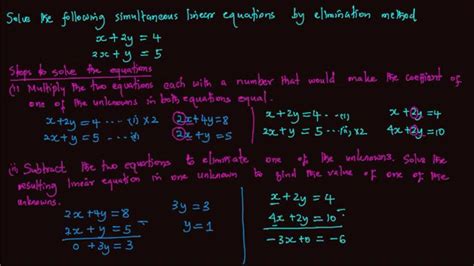 Solve the following simultaneous linear equations by elimination method
x + 2y = 4
2x + y = 5
Steps to solve the equations
(i) Multiply the two equations each with a number that would make the coefficient of
one of the unknowns in both equations equal.
x + 2y = 4 ... (i) × 2 2x + 4y = 8 x + 2y = 4 ... (i) x + 2y = 4
2x + y = 5 ... (ii) 2x + y = 5 2x + y = 5 ... (ii) × 2 4x + 2y = 10
(ii) Subtract the two equations to eliminate one of the unknowns. Solve the
resulting linear equation in one unknown to find the value of one of the
unknowns.
2x + 4y = 8 3y = 3 x + 2y = 4
2x + y = 5 y = 1 4x + 2y = 10
0 + 3y = 3 -3x + 0 = -6